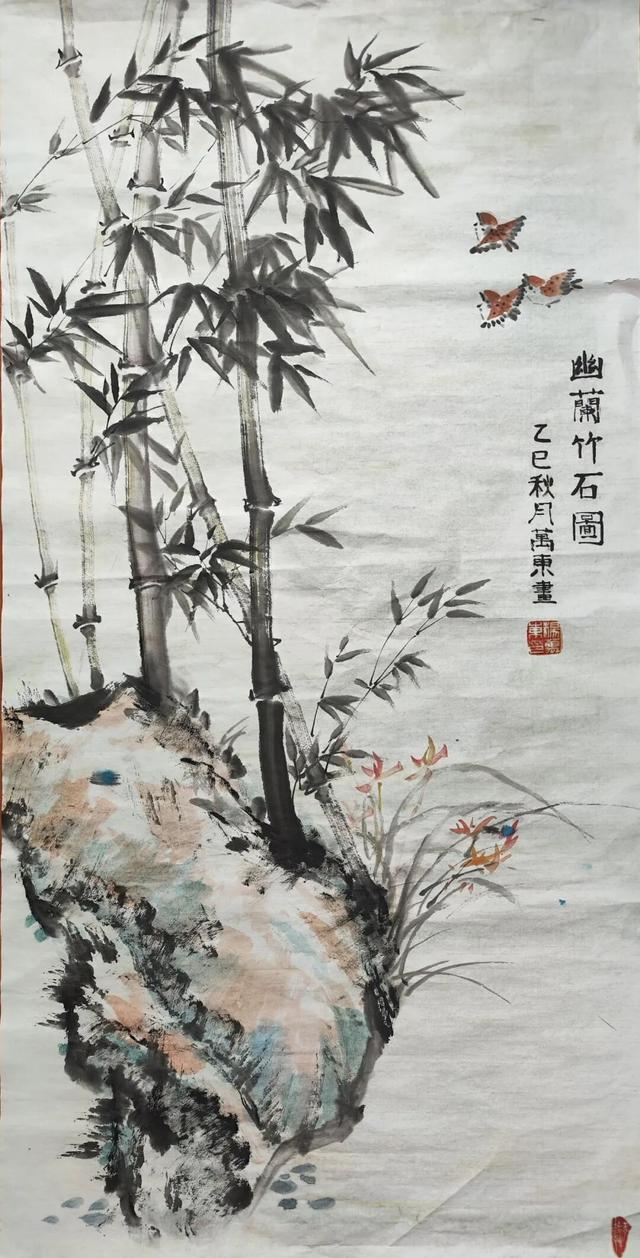 幽蘭竹石圖
乙巳秋月萬東畫